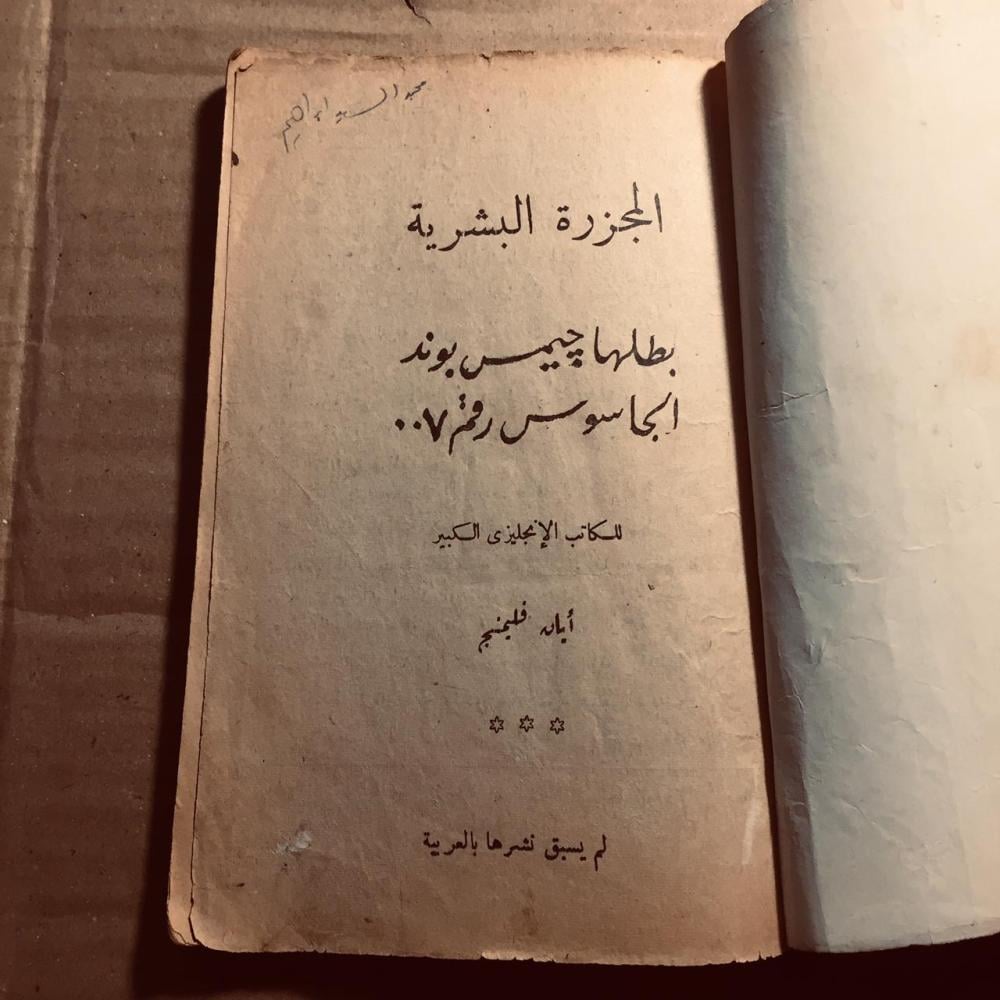 محمد السيد ابراهيم
المجزرة البشرية
بطلها چيمس بوند
الجاسوس رقم ٠٠٧
للكاتب الإنجليزى الكبير
أيان فليمنج
* * *
لم يسبق نشرها بالعربية